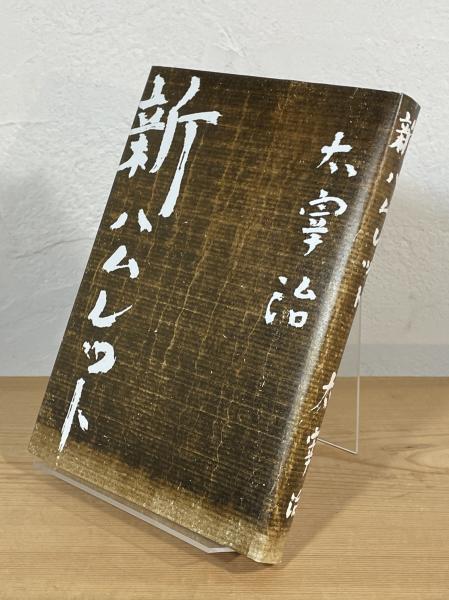 新ハムレット
太宰治
新ハムレット
太宰治